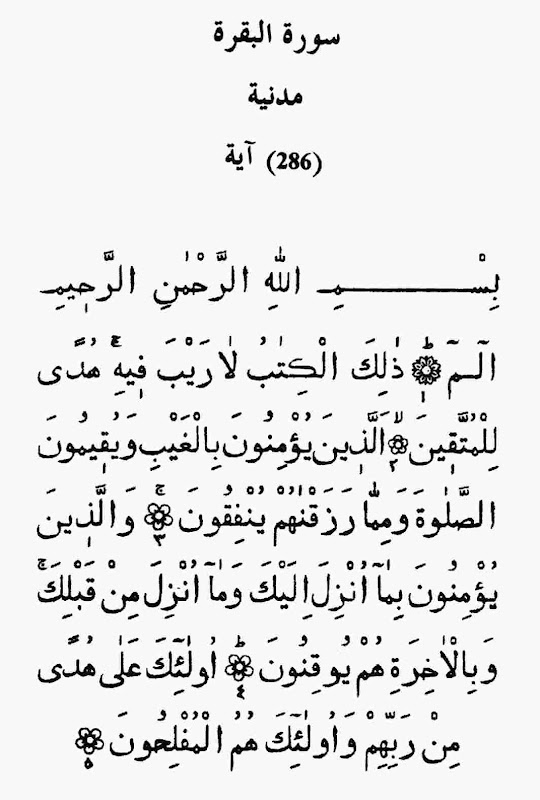 سورة البقرة
مدنية
(286) آية
بِسْمِ اللّٰهِ الرَّحْمٰنِ الرَّحِيمِ
الٓـمٓ ۚ ۝١ ذٰلِكَ الْكِتٰبُ لَا رَيْبَ فِيهِ ۚ هُدًى
لِلْمُتَّقِينَ ۙ ۝٢ اَلَّذِينَ يُؤْمِنُونَ بِالْغَيْبِ وَيُقِيمُونَ
الصَّلٰوةَ وَمِمَّا رَزَقْنٰهُمْ يُنْفِقُونَ ۚ ۝٣ وَالَّذِينَ
يُؤْمِنُونَ بِمَآ اُنْزِلَ اِلَيْكَ وَمَآ اُنْزِلَ مِنْ قَبْلِكَ ۚ
وَبِالْاٰخِرَةِ هُمْ يُوقِنُونَ ۜ ۝٤ اُولٰٓئِكَ عَلٰى هُدًى
مِنْ رَبِّهِمْ وَاُولٰٓئِكَ هُمُ الْمُفْلِحُونَ ۝٥